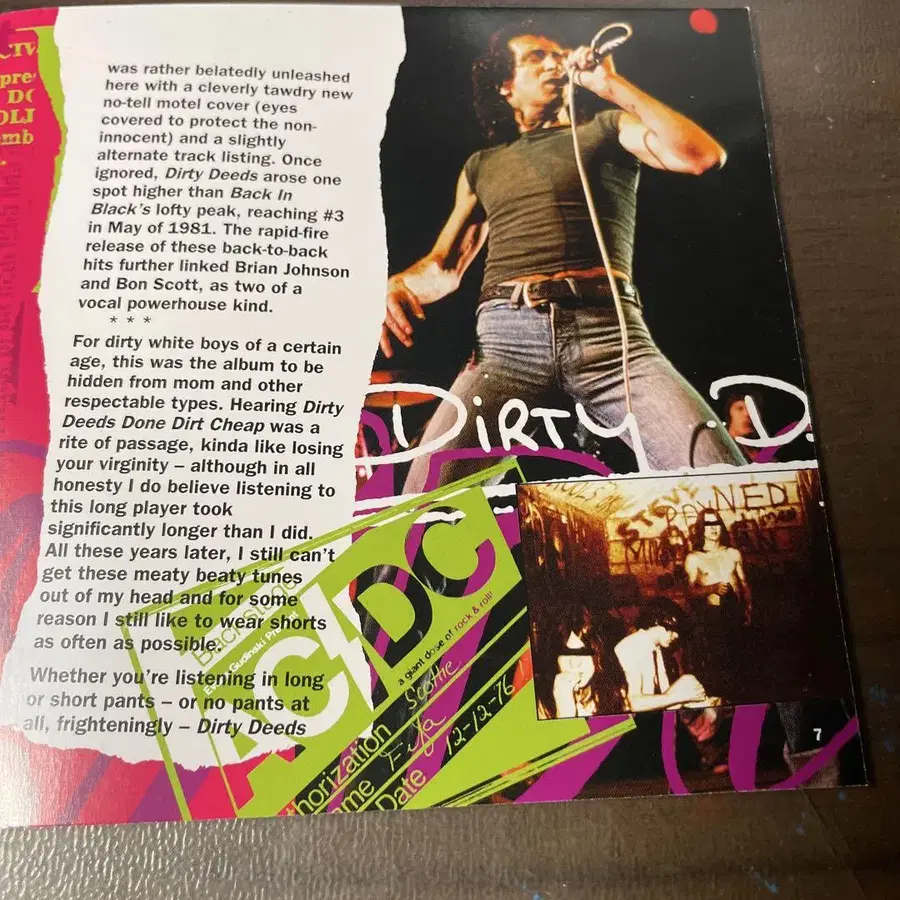 was rather belatedly unleashed
here with a cleverly tawdry new
no-tell motel cover (eyes
covered to protect the non-
innocent) and a slightly
alternate track listing. Once
ignored, Dirty Deeds arose one
spot higher than Back In
Black's lofty peak, reaching #3
in May of 1981. The rapid-fire
release of these back-to-back
hits further linked Brian Johnson
and Bon Scott, as two of a
vocal powerhouse kind.
* * *
For dirty white boys of a certain
age, this was the album to be
hidden from mom and other
respectable types. Hearing Dirty
Deeds Done Dirt Cheap was a
rite of passage, kinda like losing
your virginity – although in all
honesty I do believe listening to
this long player took
significantly longer than I did.
All these years later, I still can't
get these meaty beaty tunes
out of my head and for some
reason I still like to wear shorts
as often as possible.
Whether you're listening in long
or short pants – or no pants at
all, frighteningly – Dirty Deeds
DiRTY D
Backstage
AC/DC
a giant dose of rock & roll!
horization Scottie
ame
Date 12-12-76
7